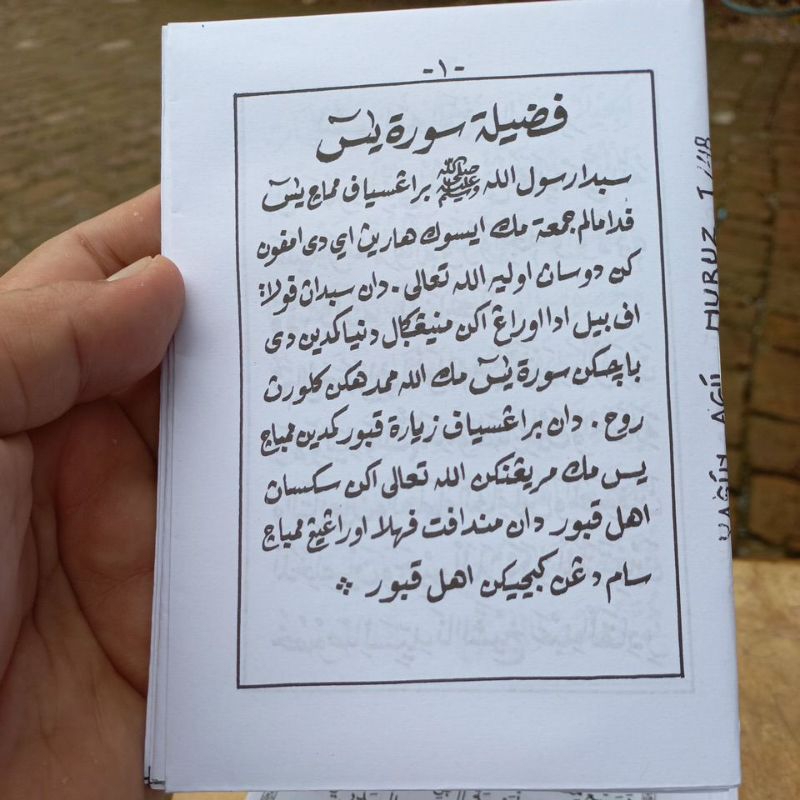 -١-
فضيلة سورة يسٓ
سبدا رسول الله ﷺ براڠسياف ممباچ يسٓ
فدا مالم جمعة مك ايسوك هارين اي دي امفون
كن دوسان اوليه الله تعالى . دان سبدان فولا:
اف بيل ادا اوراڠ اكن منيڠݢال دنيا كمدين دي
باچكن سورة يسٓ مك الله ممدهكن كلورن
روح . دان براڠسياف زيارة قبور كمدين ممباچ
يس مك مريڠنكن الله تعالى اكن سكسان
اهل قبور دان مندافت فهلا اوراڠيڠ ممباچ
سام دڠن كبجيكن اهل قبور
HURUZ 1/4B